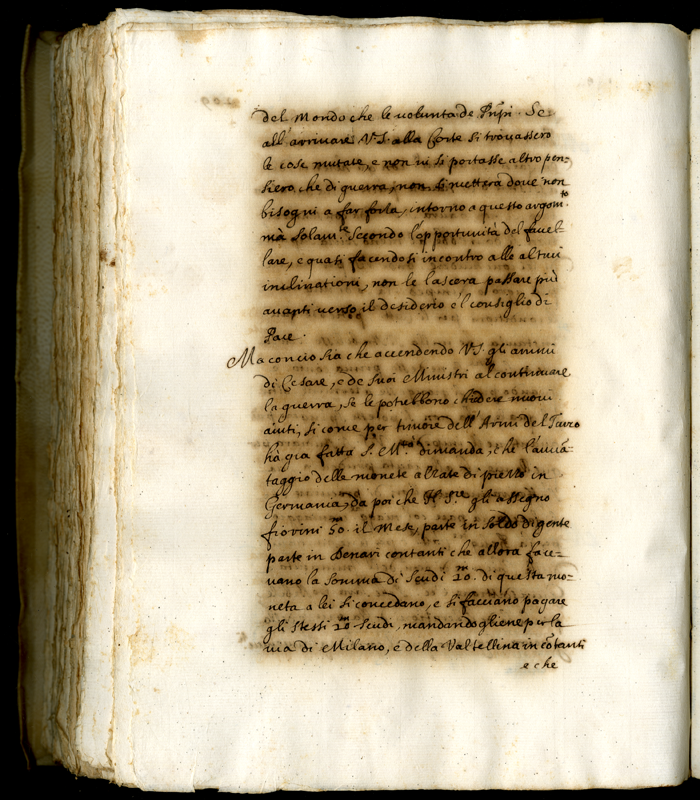 del Mondo che le voluntà de Prñpi. Se
all'arrivare V.S. alla Corte si trovassero
le cose mutate, e non vi si portasse altro pen-
siero, che di guerra, non si mettera dove non
bisogni a far forza, intorno a questo argom.to
mà solam.te secondo l'opportunità del favel-
lare, e quasi facendosi incontro alle altrui
inclinationi, non le lascera passare più
avanti verso il desiderio e'l consiglio di
Pace.
Ma concio sia che accendendo V.S. gli animi
di Cesare, e de suoi Ministri al continuare
la guerra, se le potrebbono chiedere nuovi
aiuti, si come per timore dell'Armi del Turco
hà gia fatta S. M.tà dimanda, che l'avan-
taggio delle monete alzate di prezzo in
Germania, da poi che N. S.re gli assegno
fiorini 50.m il Mese, parte in soldo di gente
parte in Denari contanti che allora face-
vano la somma di Scudi 20.m di questa mo-
neta a lei si concedano, e si facciano pagare
gli stessi 20.m Scudi, mandandogliene per la
via di Milano, e della Valtellina in cõtanti
e che